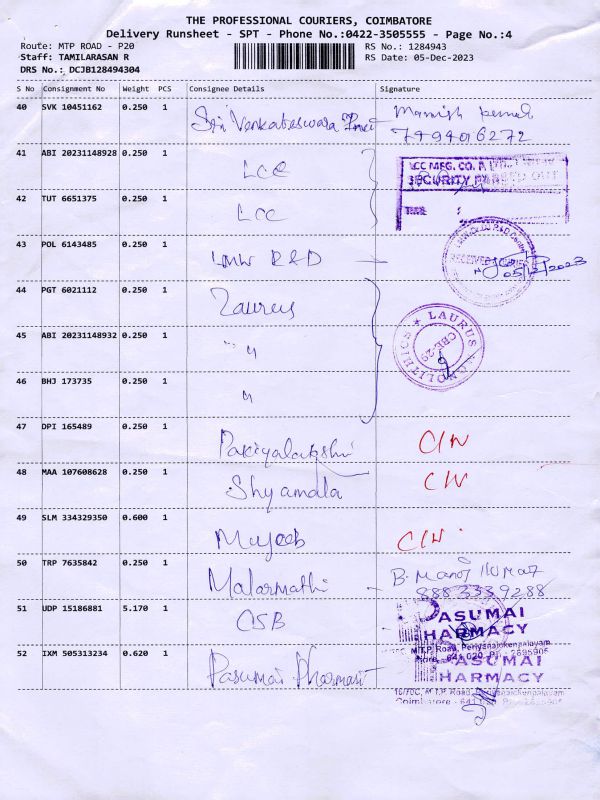 THE PROFESSIONAL COURIERS, COIMBATORE
Delivery Runsheet - SPT - Phone No.:0422-3505555 - Page No.:4
Route: MTP ROAD - P20 RS No.: 1284943
Staff: TAMILARASAN R RS Date: 05-Dec-2023
DRS No.: DCJB128494304
S No Consignment No Weight PCS Consignee Details Signature
40 SVK 10451162 0.250 1 Sri Venkateswara
41 ABI 20231148928 0.250 1 LCC
LCC MFG. CO.
SECURITY
42 TUT 6651375 0.250 1 LCC
TIME :
43 POL 6143485 0.250 1 LMW R&D
RECEIVED
05/12/2023
44 PGT 6021112 0.250 1 Laurus
LAURUS
CBE-29
45 ABI 20231148932 0.250 1 "
46 BHJ 173735 0.250 1 "
47 DPI 165489 0.250 1 Pakiyalakshmi C/N
48 MAA 107608628 0.250 1 Shyamala C/N
49 SLM 334329350 0.600 1 Mujeeb C/N
50 TRP 7635842 0.250 1 Malarmathi B. Manoj Kumar
8883339288
51 UDP 15186881 5.170 1 CSB
PASUMAI
PHARMACY
M.T.P. Road, Periyanaickenpalayam
52 IXM 505313234 0.620 1 Pasumai Pharmacy
PASUMAI
PHARMACY
M.T.P. Road, Periyanaickenpalayam
Coimbatore - 641 020